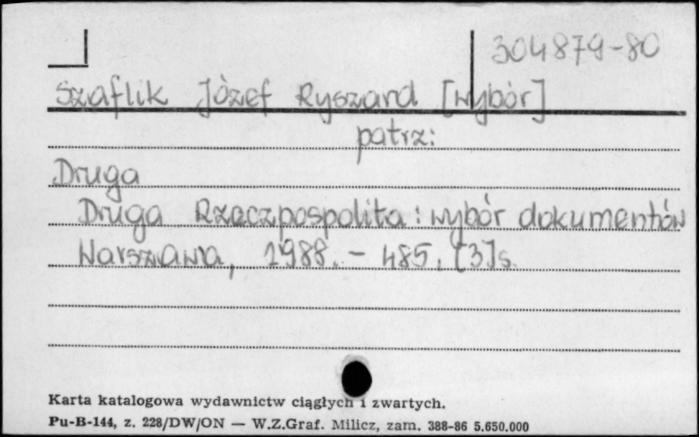 304879-80
Szaflik Józef Ryszard [wybór]
patrz:
Druga
Druga Rzeczpospolita : wybór dokumentów
Warszawa, 1988. - 485, [3]s.
Karta katalogowa wydawnictw ciągłych i zwartych.
Pu-B-144, z. 228/DW/ON — W.Z.Graf. Milicz, zam. 388-86 5.650.000